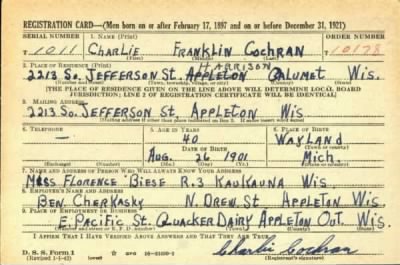 REGISTRATION CARD—(Men born on or after February 17, 1897 and on or before December 31, 1921)
SERIAL NUMBER 1. NAME (Print) ORDER NUMBER
T 1011 CHARLIE FRANKLIN COCHRAN T10178
(First) (Middle) (Last)
2. PLACE OF RESIDENCE (Print) HARRISON
2213 So. JEFFERSON St. APPLETON CALUMET WIS.
(Number and street) (Town, township, village, or city) (County) (State)
[THE PLACE OF RESIDENCE GIVEN ON THE LINE ABOVE WILL DETERMINE LOCAL BOARD
JURISDICTION; LINE 2 OF REGISTRATION CERTIFICATE WILL BE IDENTICAL]
3. MAILING ADDRESS
2213 So. JEFFERSON St. APPLETON WIS
[Mailing address if other than place indicated on line 2. If same insert word same]
4. TELEPHONE 5. AGE IN YEARS 6. PLACE OF BIRTH
— 40 WAYLAND
DATE OF BIRTH (Town or county)
AUG. 26 1901 MICH.
(Exchange) (Number) (Mo.) (Day) (Yr.) (State or country)
7. NAME AND ADDRESS OF PERSON WHO WILL ALWAYS KNOW YOUR ADDRESS
FLORENCE BIESE R.3 KAUKAUNA WIS
8. EMPLOYER'S NAME AND ADDRESS
BEN. CHERKASKY N. DREW St APPLETON WIS
9. PLACE OF EMPLOYMENT OR BUSINESS
E. PACIFIC St. QUACKER DAIRY APPLETON OUT. WIS.
(Number and street or R. F. D. number) (Town) (County) (State)
I AFFIRM THAT I HAVE VERIFIED ABOVE ANSWERS AND THAT THEY ARE TRUE.
D. S. S. Form 1
(Revised 1-1-42) (over) Charlie Cochran
(Registrant's signature)